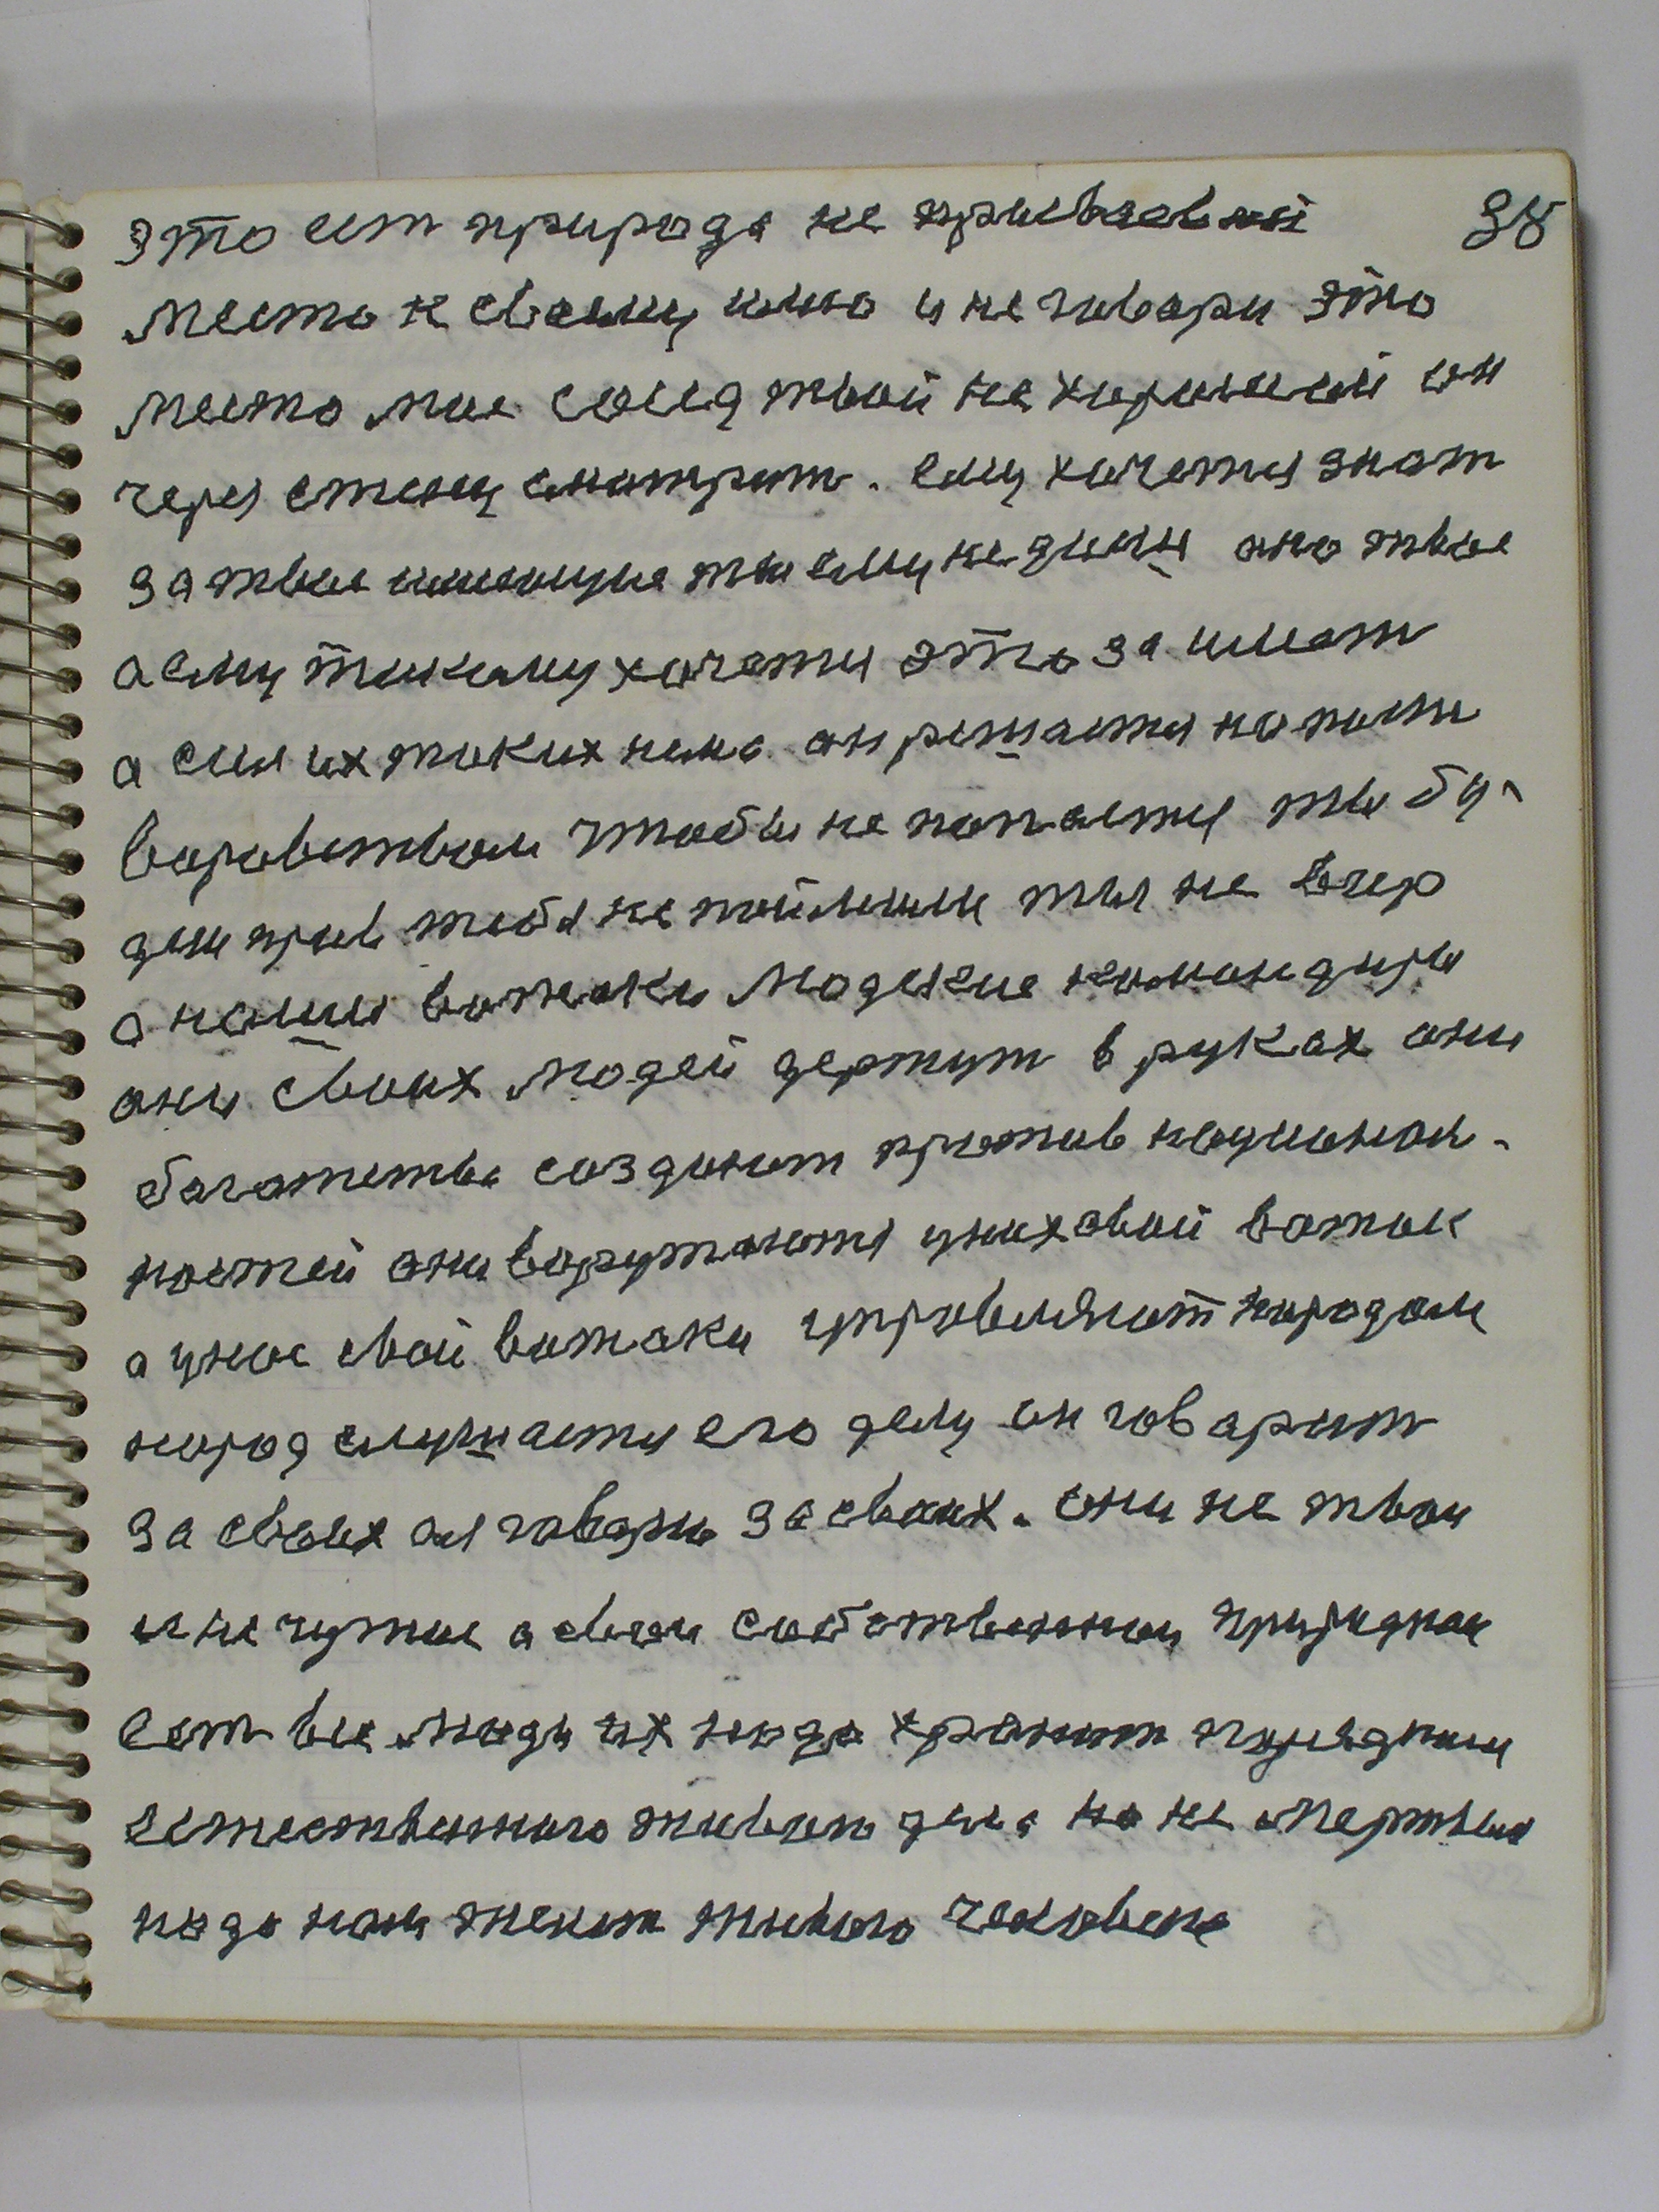 это ест природа не присваевай 38
место к своему имю и не говори это
место мое сосед твой не хороший он
через стену смотрит. ему хочетця знат
за твое имеющие ты ему не даеш оно твое
а ему такому хочетця это за имет
а сил их таких нема он решаетця на поити
воровством чтобы не попастця ты бу-
деш прав тебя не поймали ты не вчер
а наши вожаки людские командиры
они своих людей держут в руках они
богатство создают против национал-
ностей они воружаютця у них свой вожак
а у нас свои вожаки управляют народом
народ слушаетця его делу он говарит
за своих а я говарю за своих. они не твои
и не чужие а свои собственнаи природнаи
ест все люди их надо хранит природнаи
естественного живого дела но не мертвыи
надо нам жекит живого человека